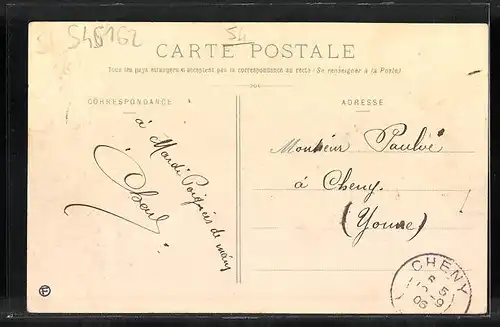 S45162
54
CARTE POSTALE
Tous les pays étrangers n'acceptent pas la correspondance au recto (Se renseigner à la Poste)
CORRESPONDANCE
ADRESSE
à Mardi Poignées de mains
Monsieur Paulvé
à Cheny.
(Yonne)
CHENY